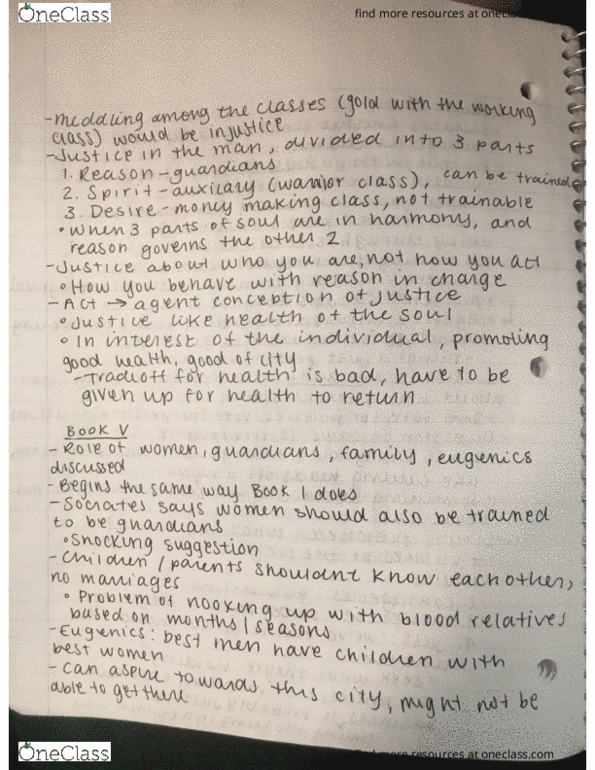 OneClass
find more resources at oneclass.com
-meddling among the classes (gold with the working
class) would be injustice
-Justice in the man, divided into 3 parts
1. Reason-guardians
2. Spirit-auxilary (warrior class), can be trained
3. Desire-money making class, not trainable
•When 3 parts of soul are in harmony, and
reason governs the other 2
-Justice about who you are, not how you act
•How you behave with reason in charge
-Act → agent conception of justice
•Justice like health of the soul
•In interest of the individual, promoting
good health, good of city
-Tradeoff for health is bad, have to be
given up for health to return
BOOK V
-Role of women, guardians, family, eugenics
discussed
-Begins the same way Book I does
-Socrates says women should also be trained
to be guardians
•Shocking suggestion
-Children/parents shouldnt know each other,
no marriages
•Problem of hooking up with blood relatives
based on months/seasons
-Eugenics: best men have children with
best women
-Can aspire towards this city, might not be
able to get there
OneClass
find more resources at oneclass.com